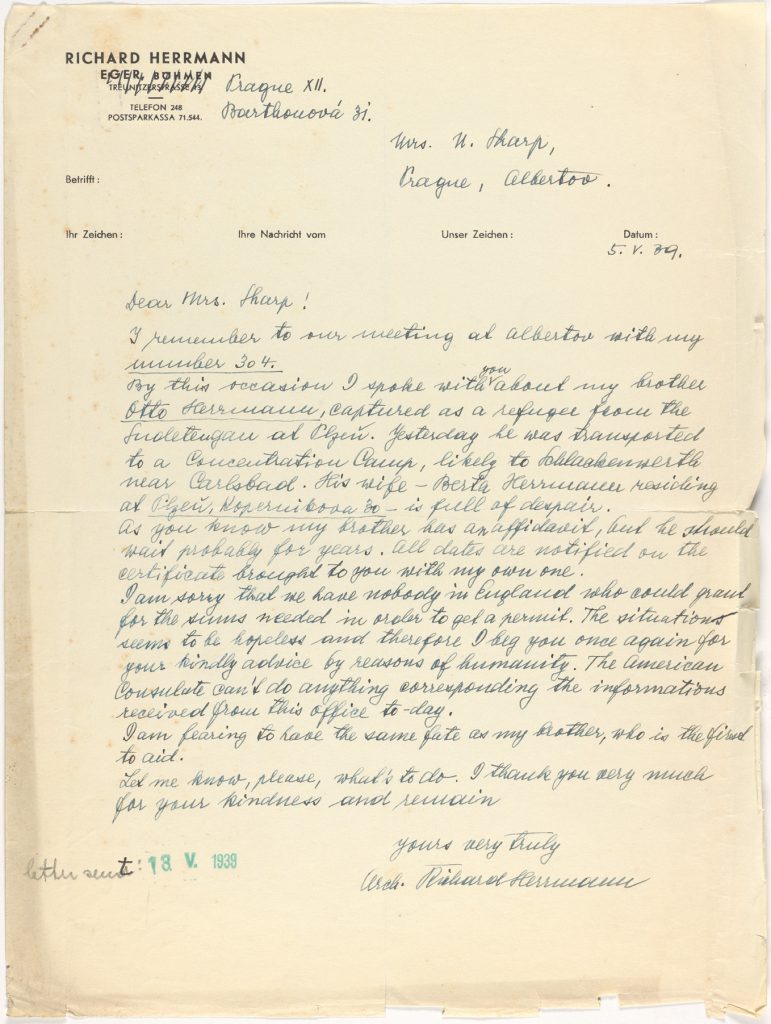 RICHARD HERRMANN
EGER, BÖHMEN
TREUNITZERSTRASSE 13
TELEFON 248
POSTSPARKASSA 71.544.
Prague XII.
Barthouová 31.
Mrs. W. Sharp,
Prague, Albertov.
Betrifft:
Ihr Zeichen: Ihre Nachricht vom Unser Zeichen: Datum:
5. V. 39.
Dear Mrs. Sharp!
I remember to our meeting at Albertov with my
number 304.
By this occasion I spoke with you about my brother
Otto Herrmann, captured as a refugee from the
Sudetengau at Plzeň. Yesterday he was transported
to a Concentration Camp, likely to Schlackenwerth
near Carlsbad. His wife – Berta Herrmann residing
at Plzeň, Kopernikova 30 – is full of despair.
As you know my brother has an affidavit, but he should
wait probably for years. All dates are notified on the
certificate brought to you with my own one.
I am sorry that we have nobody in England who could grant
for the sums needed in order to get a permit. The situations
seems to be hopeless and therefore I beg you once again for
your kindly advice by reasons of humanity. The American
Consulate can't do anything corresponding the informations
received from this office to-day.
I am fearing to have the same fate as my brother, who is the first
to aid.
Let me know, please, what's to do. I thank you very much
for your kindness and remain
yours very truly
Arch. Richard Herrmann
letter sent: 13 V. 1939